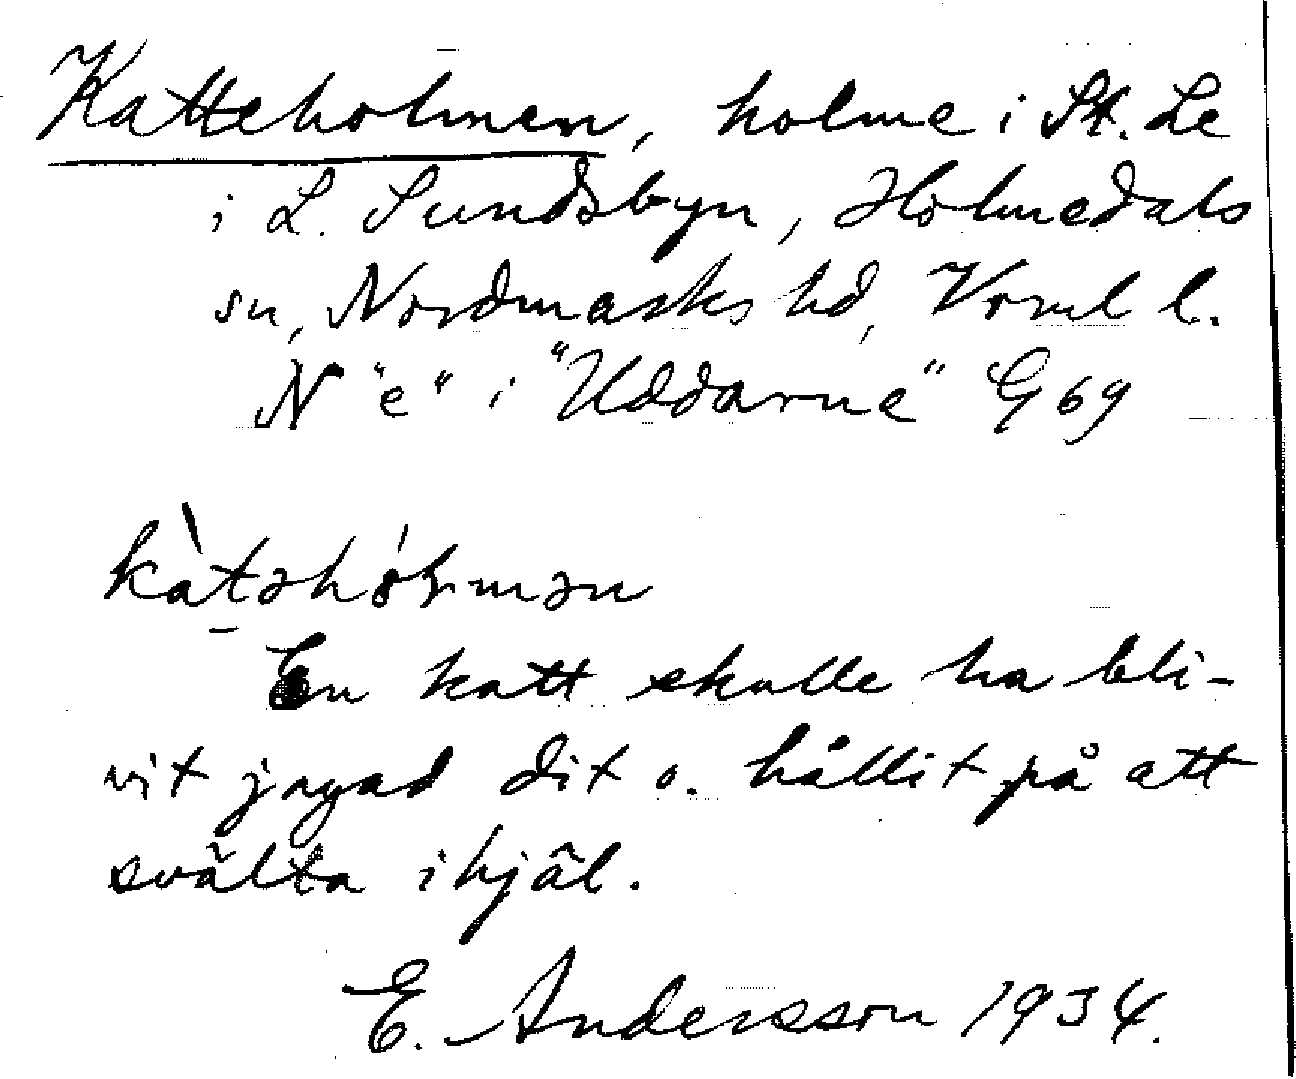 Katteholmen, holme i St. Le
i L. Sundsbyn, Holmedals
sn, Nordmarks hd, Vrml l.
N "e" i "Uddarne" G 69
kàtəhól·mən
En katt skulle ha bli-
vit jagad dit o. hållit på att
svälta ihjäl.
E. Andersson 1934.